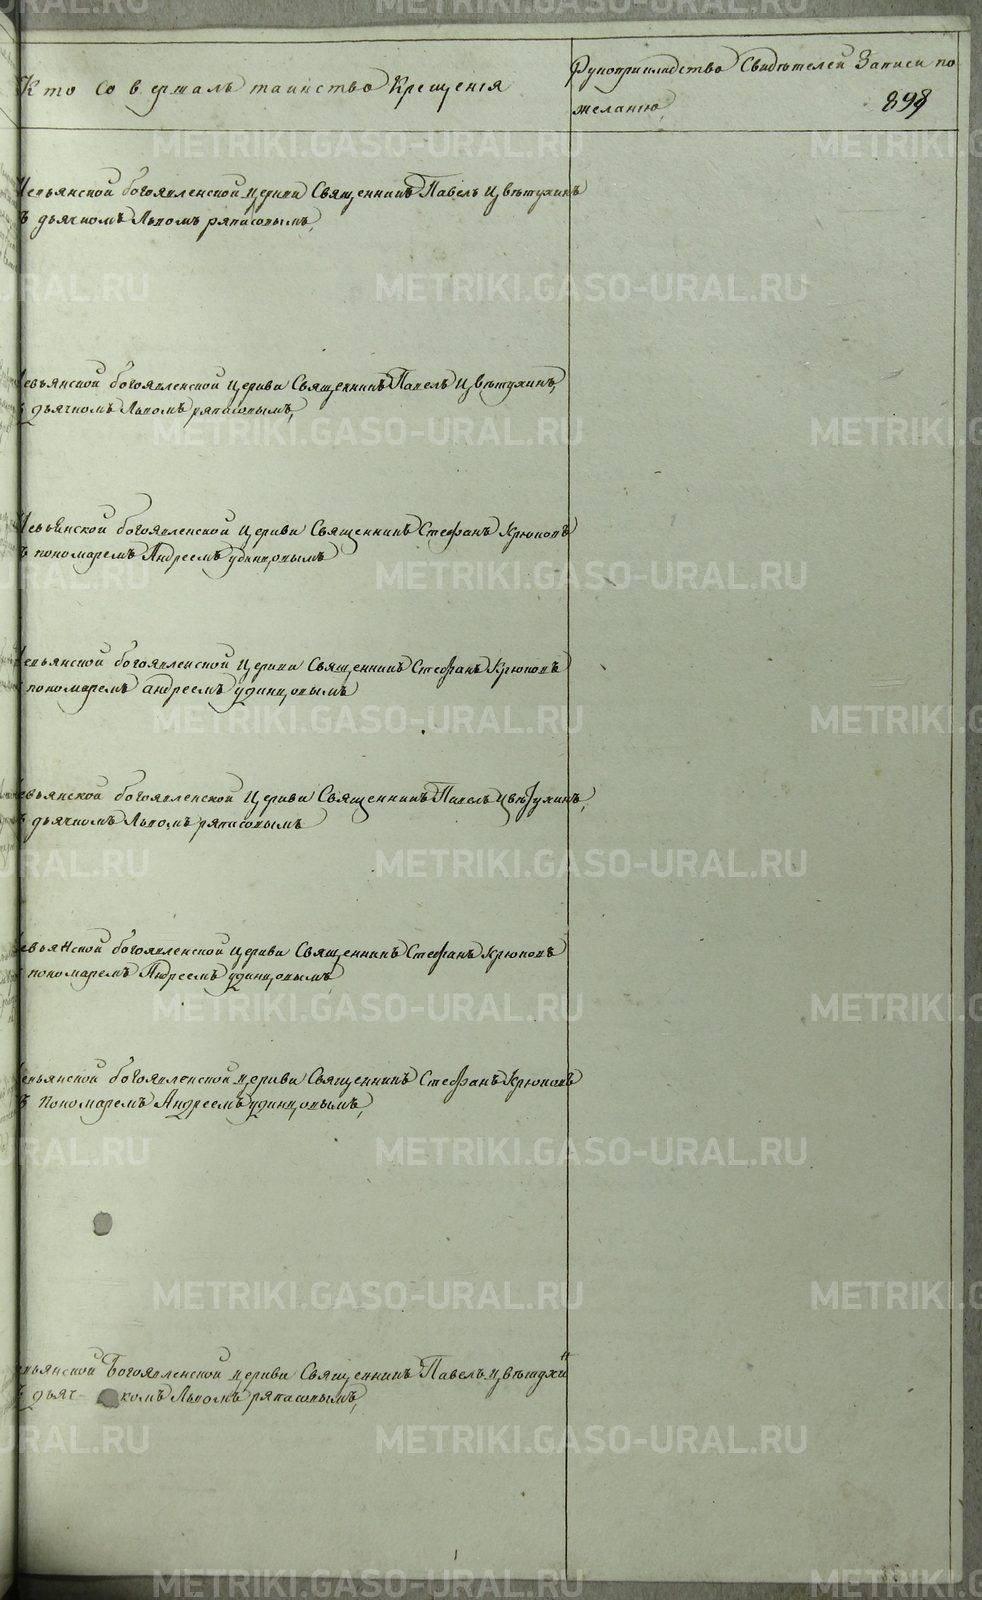 Кто совершалъ таинство Крещенія
Рукоприкладство Свидѣтелей Записи по
желанію,
898
Невьянской богоявленской церкви Священникъ Павелъ Цвѣтухинъ
съ дьячкомъ Львомъ ряпасовымъ,
Невьянской богоявленской церкви Священникъ Павелъ Цвѣтухинъ,
съ дьячкомъ Львомъ ряпасовымъ,
Невьянской богоявленской церкви Священникъ Стефанъ Крюковъ
съ пономаремъ Андреемъ удинцовымъ
Невьянской богоявленской церкви Священникъ Стефанъ Крюковъ
съ пономаремъ андреемъ удинцовымъ
Невьянской богоявленской церкви Священникъ Павелъ Цвѣтухинъ,
съ дьячкомъ Львомъ ряпасовымъ
Невьянской богоявленской церкви Священникъ Стефанъ Крюковъ
съ пономаремъ Андреемъ удинцовымъ,
Невьянской богоявленской церкви Священникъ Стефанъ Крюковъ
съ Пономаремъ Андреемъ удинцовымъ,
Невьянской Богоявленской церкви Священникъ Павелъ Цвѣтухин
съ дьяч-комъ Львомъ ряпасовымъ,
METRIKI.GASO-URAL.RU